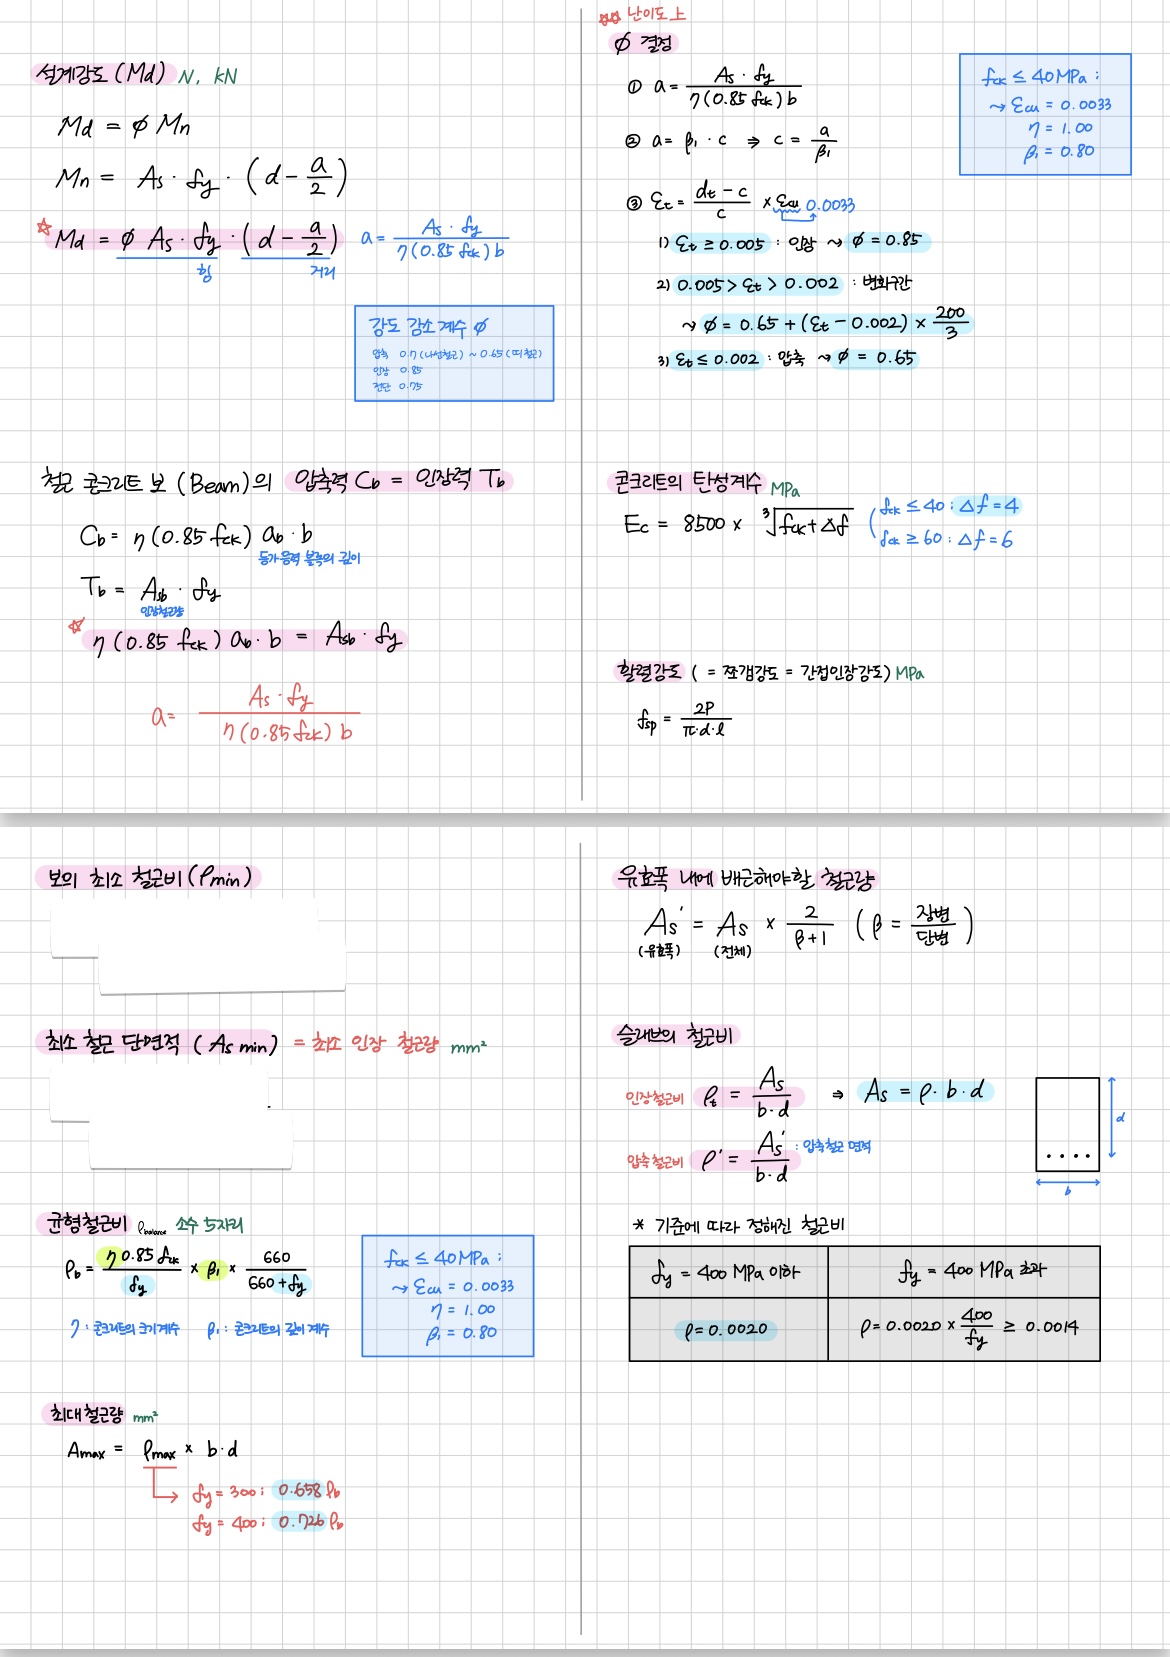 설계강도 (Md) N, kN
Md = φ Mn
Mn = As · fy · (d - a/2)
☆ Md = φ As · fy · (d - a/2)
힘 거리
a = As · fy / η(0.85 fck) b
강도 감소 계수 φ
압축 0.7 (나선철근) ~ 0.65 (띠철근)
인장 0.85
전단 0.75
철근 콘크리트 보 (Beam)의 압축력 Cb = 인장력 Tb
Cb = η (0.85 fck) ab · b
등가응력 블록의 깊이
Tb = Asb · fy
인장철근량
☆ η (0.85 fck) ab · b = Asb · fy
a = As · fy / η (0.85 fck) b
☆☆ 난이도 上
φ 결정
① a = As · fy / η (0.85 fck) b
② a = β₁ · c ⇒ c = a/β₁
③ εt = (dt - c)/c × εcu 0.0033
1) εt ≥ 0.005 : 인장 ⤳ φ = 0.85
2) 0.005 > εt > 0.002 : 변화구간
⤳ φ = 0.65 + (εt - 0.002) × 200/3
3) εt ≤ 0.002 : 압축 ⤳ φ = 0.65
fck ≤ 40 MPa :
⤳ εcu = 0.0033
η = 1.00
β₁ = 0.80
콘크리트의 탄성계수 MPa
Ec = 8500 × ³√(fck + Δf)
( fck ≤ 40 : Δf = 4
fck ≥ 60 : Δf = 6
할렬강도 ( = 쪼갬강도 = 간접인장강도) MPa
fsp = 2P / π·d·l
보의 최소 철근비 (ρmin)
최소 철근 단면적 ( As min) = 최소 인장 철근량 mm²
균형철근비 ρbalance 소수 5자리
ρb = η 0.85 fck / fy × β₁ × 660 / (660 + fy)
η : 콘크리트의 크기계수 β₁ : 콘크리트의 깊이 계수
fck ≤ 40 MPa :
⤳ εcu = 0.0033
η = 1.00
β₁ = 0.80
최대철근량 mm²
Amax = ρmax × b·d
fy = 300 ; 0.658 ρb
fy = 400 ; 0.726 ρb
유효폭 내에 배근해야할 철근량
As' = As × 2/(β+1) (β = 장변/단변)
(유효폭) (전체)
슬래브의 철근비
인장철근비 ρt = As / b·d ⇒ As = ρ · b · d
압축철근비 ρ' = As' / b·d : 압축철근 면적
d
b
* 기준에 따라 정해진 철근비
fy = 400 MPa 이하 fy = 400 MPa 초과
ρ = 0.0020 ρ = 0.0020 × 400/fy ≥ 0.0014